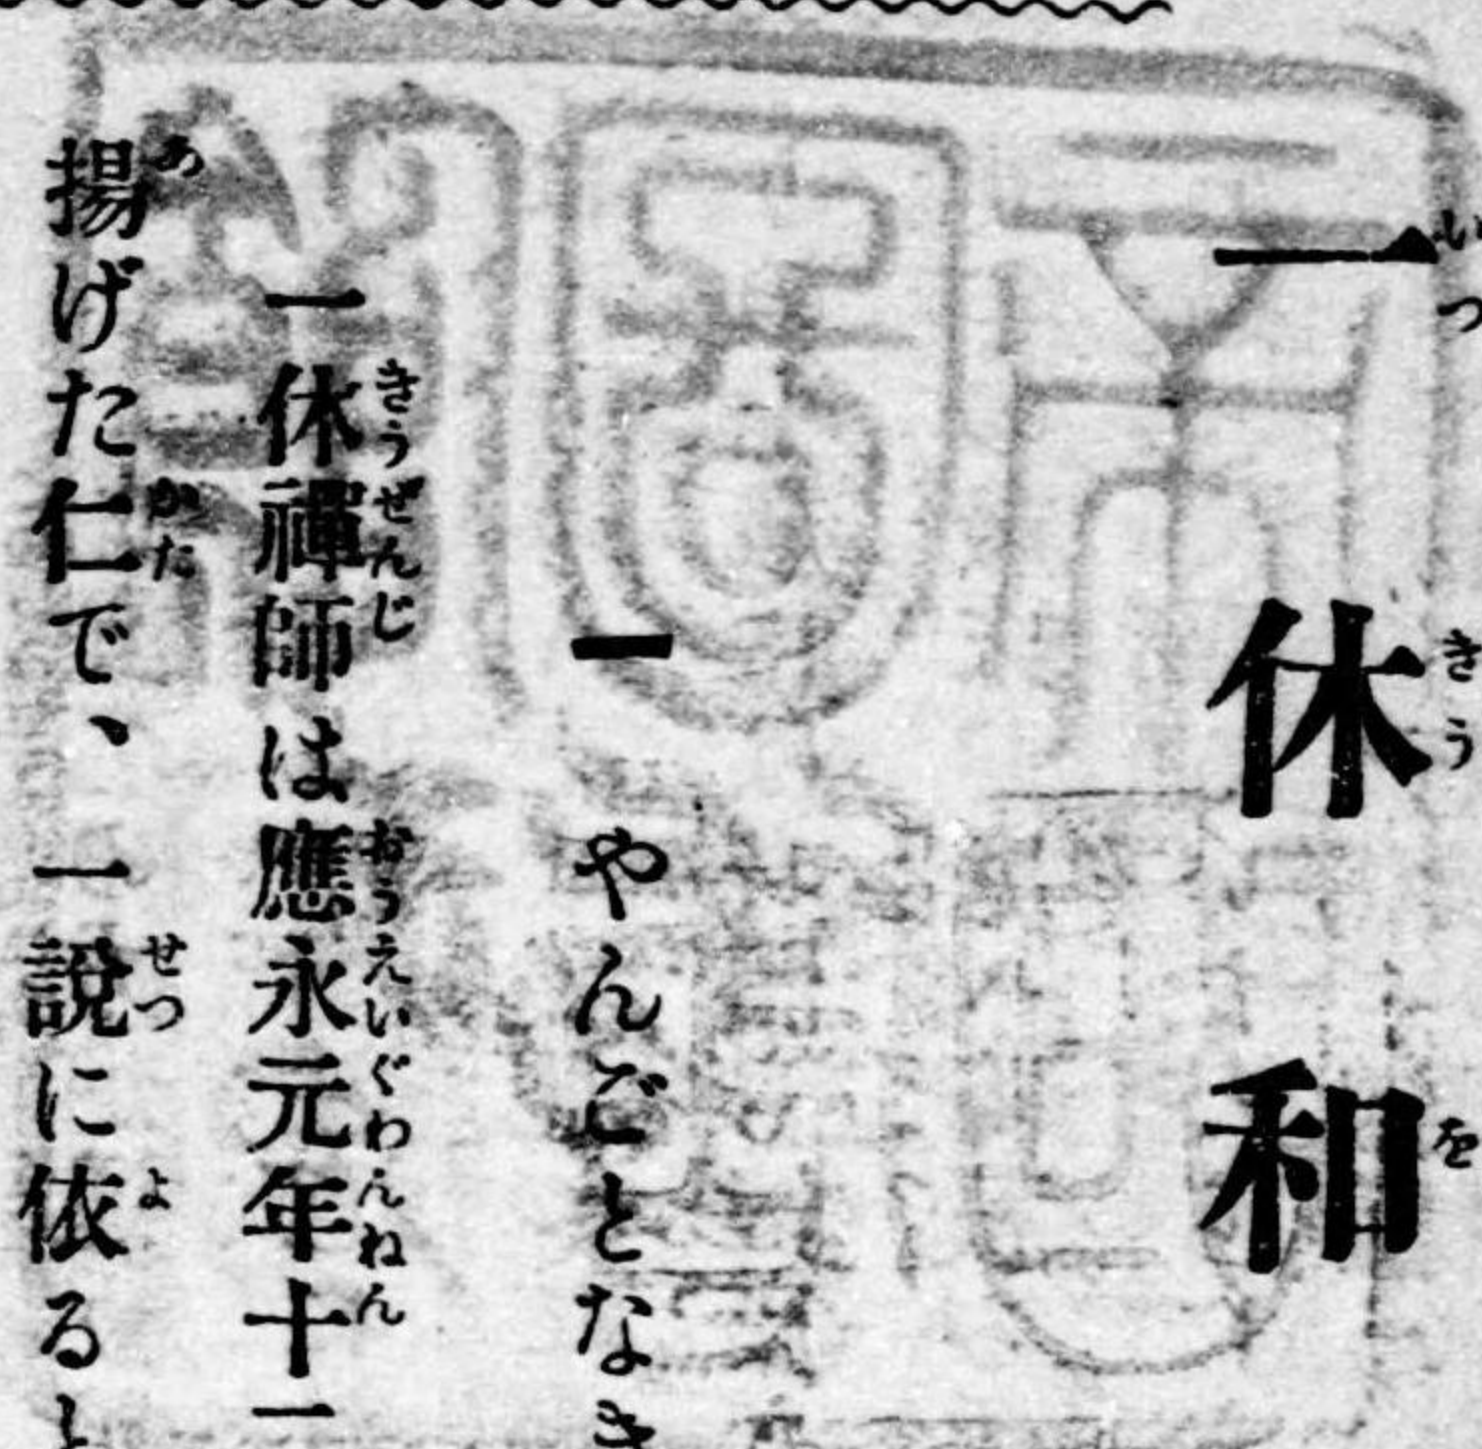 一休和
一 やんごとなき
一休禪師は應永元年十一
揚げた仁で、一說に依ると